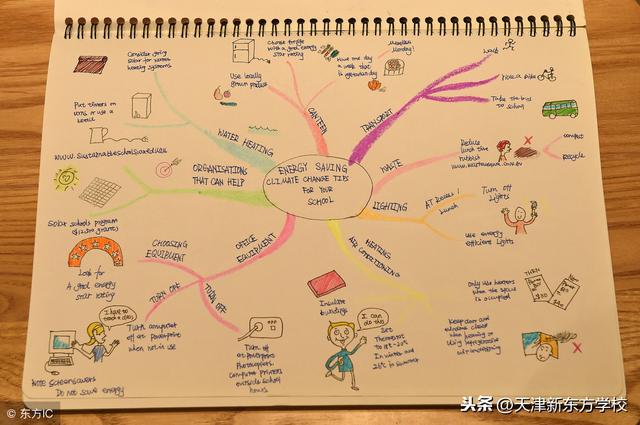 ENERGY SAVING
CLIMATE CHANGE TIPS
FOR YOUR
SCHOOL
CANTEEN
Use locally
grown produce
Have one day
a week that
is vegetarian day
Meatless
Monday!
TRANSPORT
Walk
Ride a bike
Take the bus
to school
WASTE
Reduce
lunch time
rubbish
compost
recycle
LIGHTING
AT Recess /
Lunch
Turn off
Lights
Use energy
efficient Lights
HEATING
AIR CONDITIONING
Only use heaters
when the space
is occupied
Keep doors and
windows closed
when heating or
using refrigerative
air-conditioning
Set
Thermostat
to 18°-20°
In winter and
in summer
I can
do this
Insulate
buildings
OFFICE
EQUIPMENT
TURN OFF
Turn off
at powerpoint
Photocopiers
computer printers
outside school
hours
TURN OFF
Turn computer
off at powerpoint
when not in use
I have to
NOTE Screensavers
Do not save energy
CHOOSING
EQUIPMENT
Look for
A good energy
star rating
ORGANISATIONS
THAT CAN HELP
Solar schools program
WATER HEATING
Consider going
solar for water
heating systems
Put timers on
urns or use a
kettle
© 东方IC
头条 @天津新东方学校